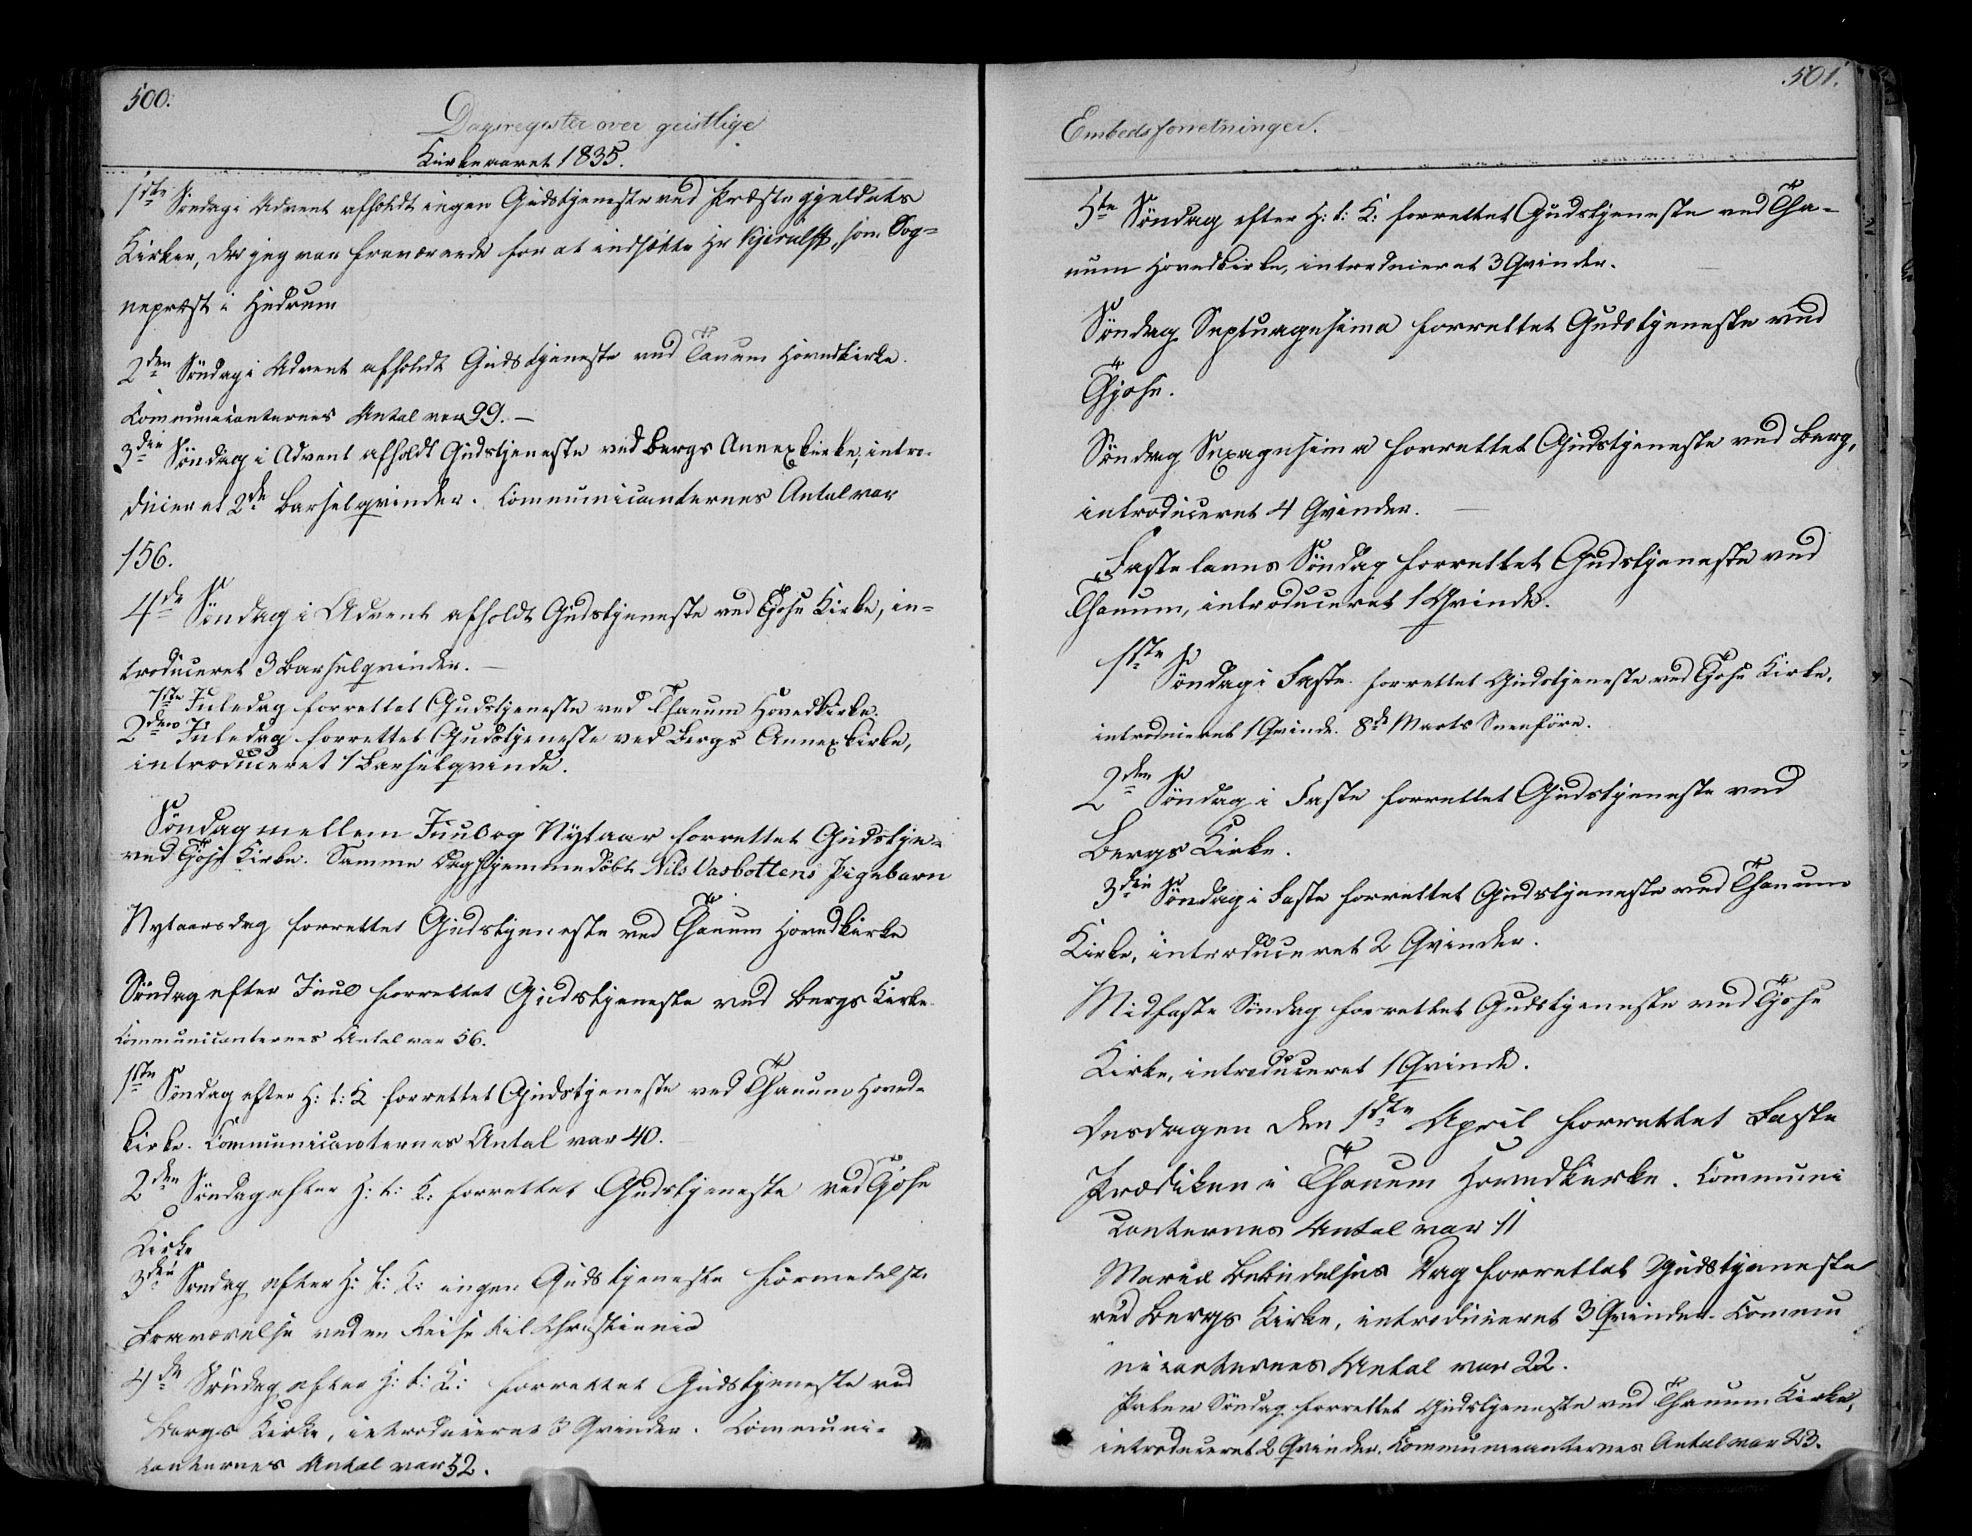 500.
Dagsregister over geistlige
Kirkeaaret 1835.
1ste Söndag i Advent afholdt ingen Gudstjeneste ved Præstegjeldets
Kirker, da jeg var fraværende for at indsætte Hr Kjerulff, som Sog-
nepræst i Hedrum
2den Söndag i Advent afholdt Gudstjeneste ved Tanum Hovedkirke.
Communicanternes Antal var 99. —
3die Söndag i Advent afholdt Gudstjeneste ved Bergs Annexkirke, intro-
duceret 2de Barselqvinder. Communicanternes Antal var
156.
4de Söndag i Advent afholdt Gudstjeneste ved Tjöse Kirke, in-
troduceret 3 Barselqvinder. —
1ste Juledag forrettet Gudstjeneste ved Thanum Hovedkirke.
2den Juledag forrettet Gudstjeneste ved Bergs Annexkirke,
introduceret 1 Barselqvinde.
Söndag mellem Juul og Nytaar forrettet Gudstje-
ved Tjöse Kirke. Samme Dag hjemmedöbt Nils Vasbottens Pigebarn
Nytaarsdag forrettet Gudstjeneste ved Thanum Hovedkirke
Söndag efter Juul forrettet Gudstjeneste ved Bergs Kirke
Communicanternes Antal var 56.
1ste Söndag efter H: t: K forrettet Gudstjeneste ved Thanum Hoved-
kirke. Communicanternes Antal var 40.
2den Söndag efter H: t: K: forrettet Gudstjeneste ved Tjöse
Kirke
3die Söndag efter H: t: K: ingen Gudstjeneste formedelst
Fraværelse ved en Reise til Christiania
4de Söndag efter H: t: K: forrettet Gudstjeneste ved
Bergs Kirke, introduceret 3 Qvinder. Communi-
canternes Antal var 52.
501.
Embedsforretninger.
5te Söndag efter H: t: K: forrettet Gudstjeneste ved Tha-
num Hovedkirke, introduceret 3 Qvinder.
Söndag Septuagesima forrettet Gudstjeneste ved
Thjöse.
Söndag Sexagesima forrettet Gudstjeneste ved Berg,
introduceret 4 Qvinder.
Fastelavns Söndag forrettet Gudstjeneste ved
Thanum, introduceret 1 Qvinde.
1ste Söndag i Faste forrettet Gudstjeneste ved Tjöse Kirke,
introduceret 1 Qvinde. 8de Marts
2den Söndag i Faste forrettet Gudstjeneste ved
Bergs Kirke.
3die Söndag i Faste forrettet Gudstjeneste ved Thanum
Kirke, introduceret 2 Qvinder.
Midfaste Söndag forrettet Gudstjeneste ved Tjöse
Kirke, introduceret 1 Qvinde.
Onsdagen den 1ste April forrettet Faste
Prædiken i Thanum Hovedkirke. Communi
canternes Antal var 11
Mariæ Bebudelses Dag forrettet Gudstjeneste
ved Bergs Kirke, introduceret 3 Qvinder. Commu
nicanternes Antal var 22.
Palme Söndag forrettet Gudstjeneste ved Thanum Kirke,
introduceret 2 Qvinder. Communicanternes Antal var 23.